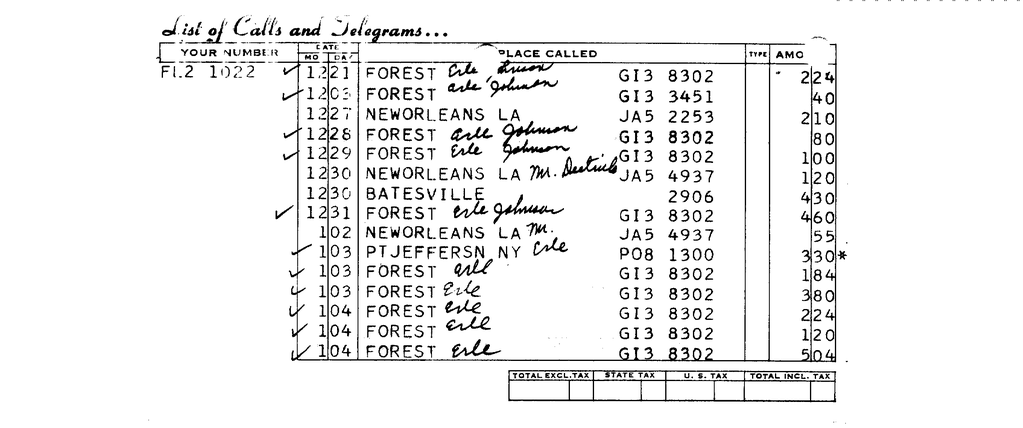 List of Calls and Telegrams...
YOUR NUMBER DATE MO DAY PLACE CALLED TYPE AMO
FL2 1022 ✓ 12 21 FOREST Erle GI3 8302 2 24
✓ 12 03 FOREST Erle Johnson GI3 3451 40
12 27 NEWORLEANS LA JA5 2253 2 10
✓ 12 28 FOREST Erle Johnson GI3 8302 80
✓ 12 29 FOREST Erle Johnson GI3 8302 1 00
12 30 NEWORLEANS LA Mr. JA5 4937 1 20
12 30 BATESVILLE 2906 4 30
✓ 12 31 FOREST Erle Johnson GI3 8302 4 60
1 02 NEWORLEANS LA Mr. JA5 4937 55
✓ 1 03 PTJEFFERSN NY Erle PO8 1300 3 30*
✓ 1 03 FOREST Erle GI3 8302 1 84
✓ 1 03 FOREST Erle GI3 8302 3 80
✓ 1 04 FOREST Erle GI3 8302 2 24
✓ 1 04 FOREST Erle GI3 8302 1 20
✓ 1 04 FOREST Erle GI3 8302 5 04
TOTAL EXCL. TAX STATE TAX U. S. TAX TOTAL INCL. TAX